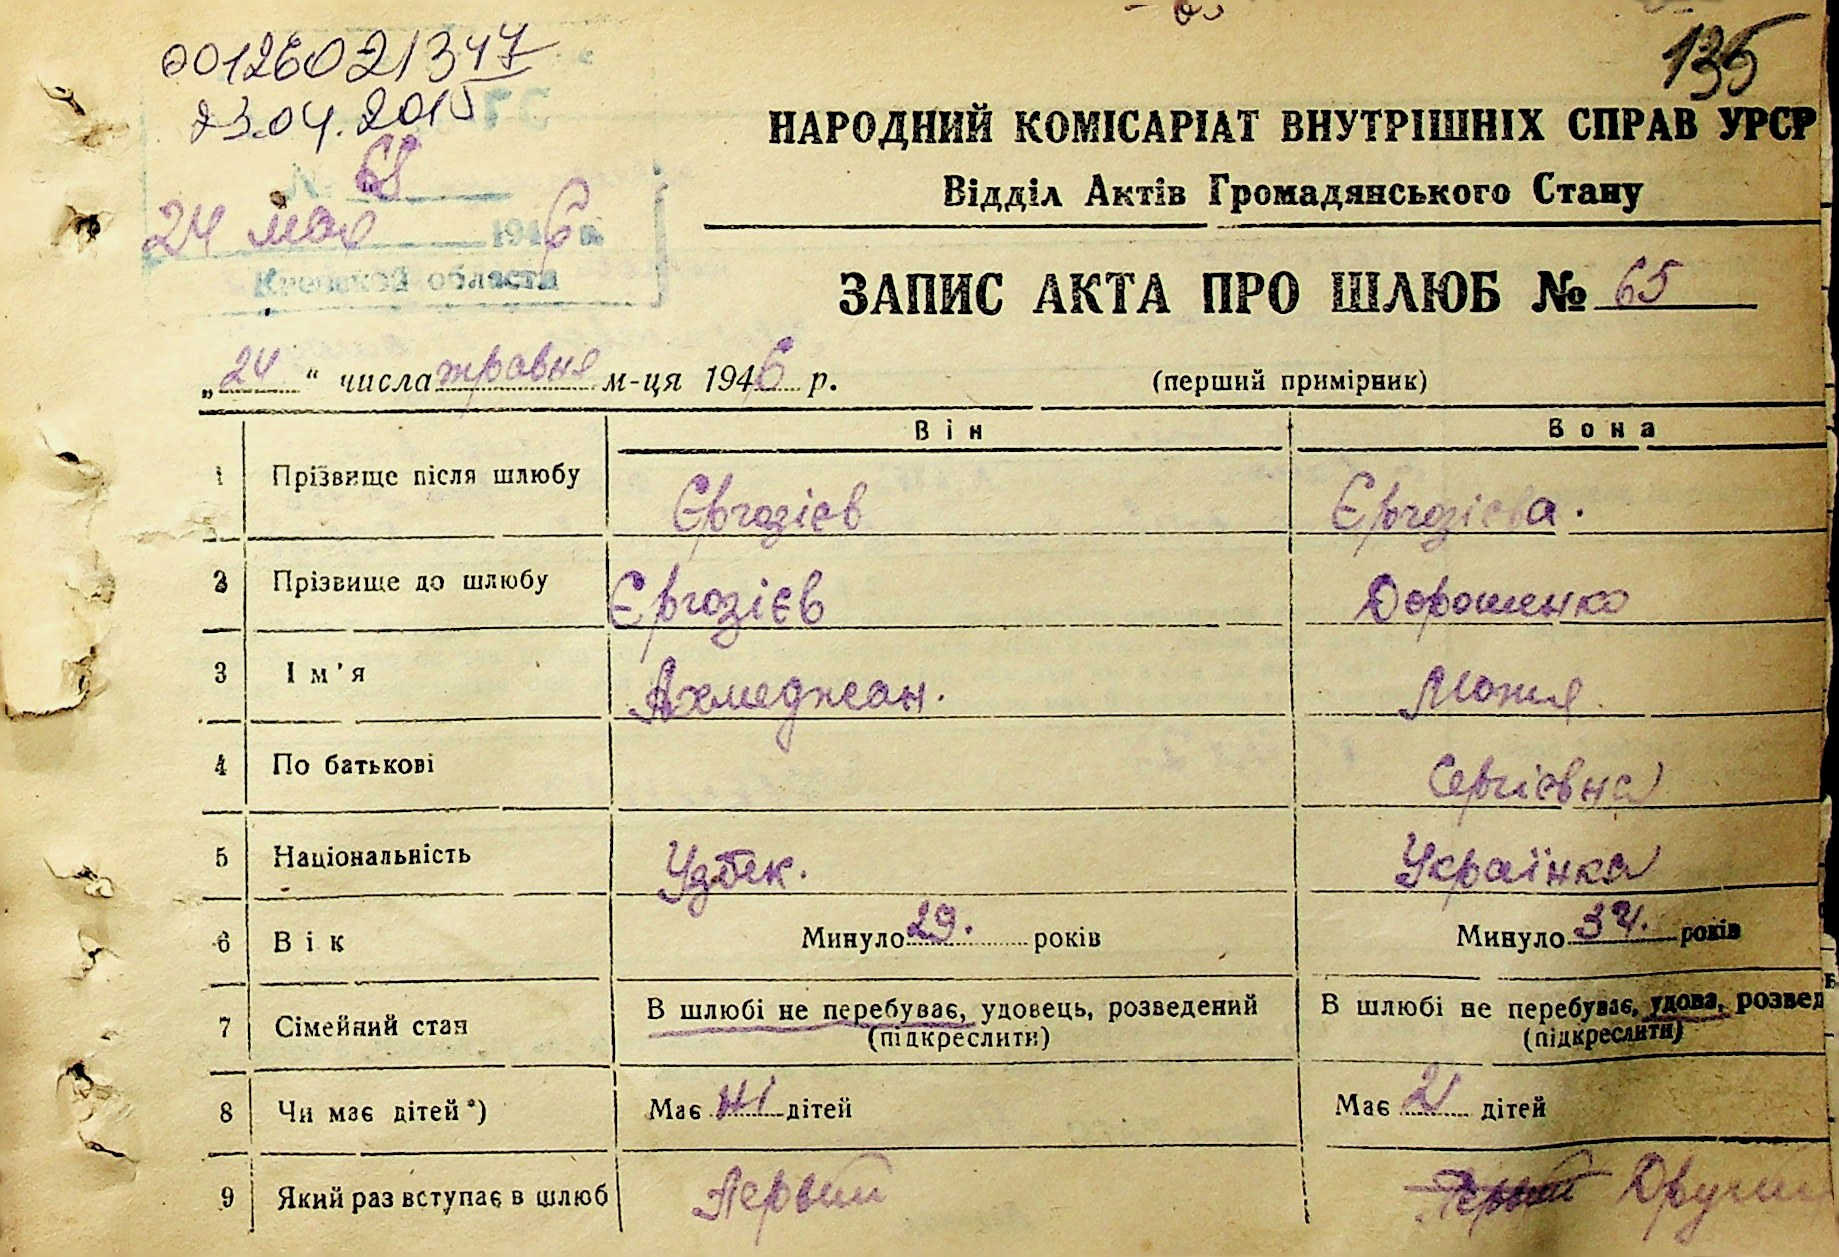 00126021347
23.04.2015
135
НАРОДНИЙ КОМІСАРІАТ ВНУТРІШНІХ СПРАВ УРСР
Відділ Актів Громадянського Стану
№ 68
24 мая 1946 г.
области
ЗАПИС АКТА ПРО ШЛЮБ № 65
„24“ числа травня м-ця 1946 р.
(перший примірник)
Він Вона
1 Прізвище після шлюбу Єргозієв Єргозієва.
2 Прізвище до шлюбу Єргозієв Дорошенко
3 Ім'я Ахмеджан. Мотя
4 По батькові Сергієвна
5 Національність Узбек. Українка
6 Вік Минуло 29. років Минуло 34. років
7 Сімейний стан В шлюбі не перебуває, удовець, розведений В шлюбі не перебуває, удова, розвед
(підкреслити) (підкреслити)
8 Чи має дітей*) Має ні дітей Має 2 дітей
9 Який раз вступає в шлюб Первый Первый Другий